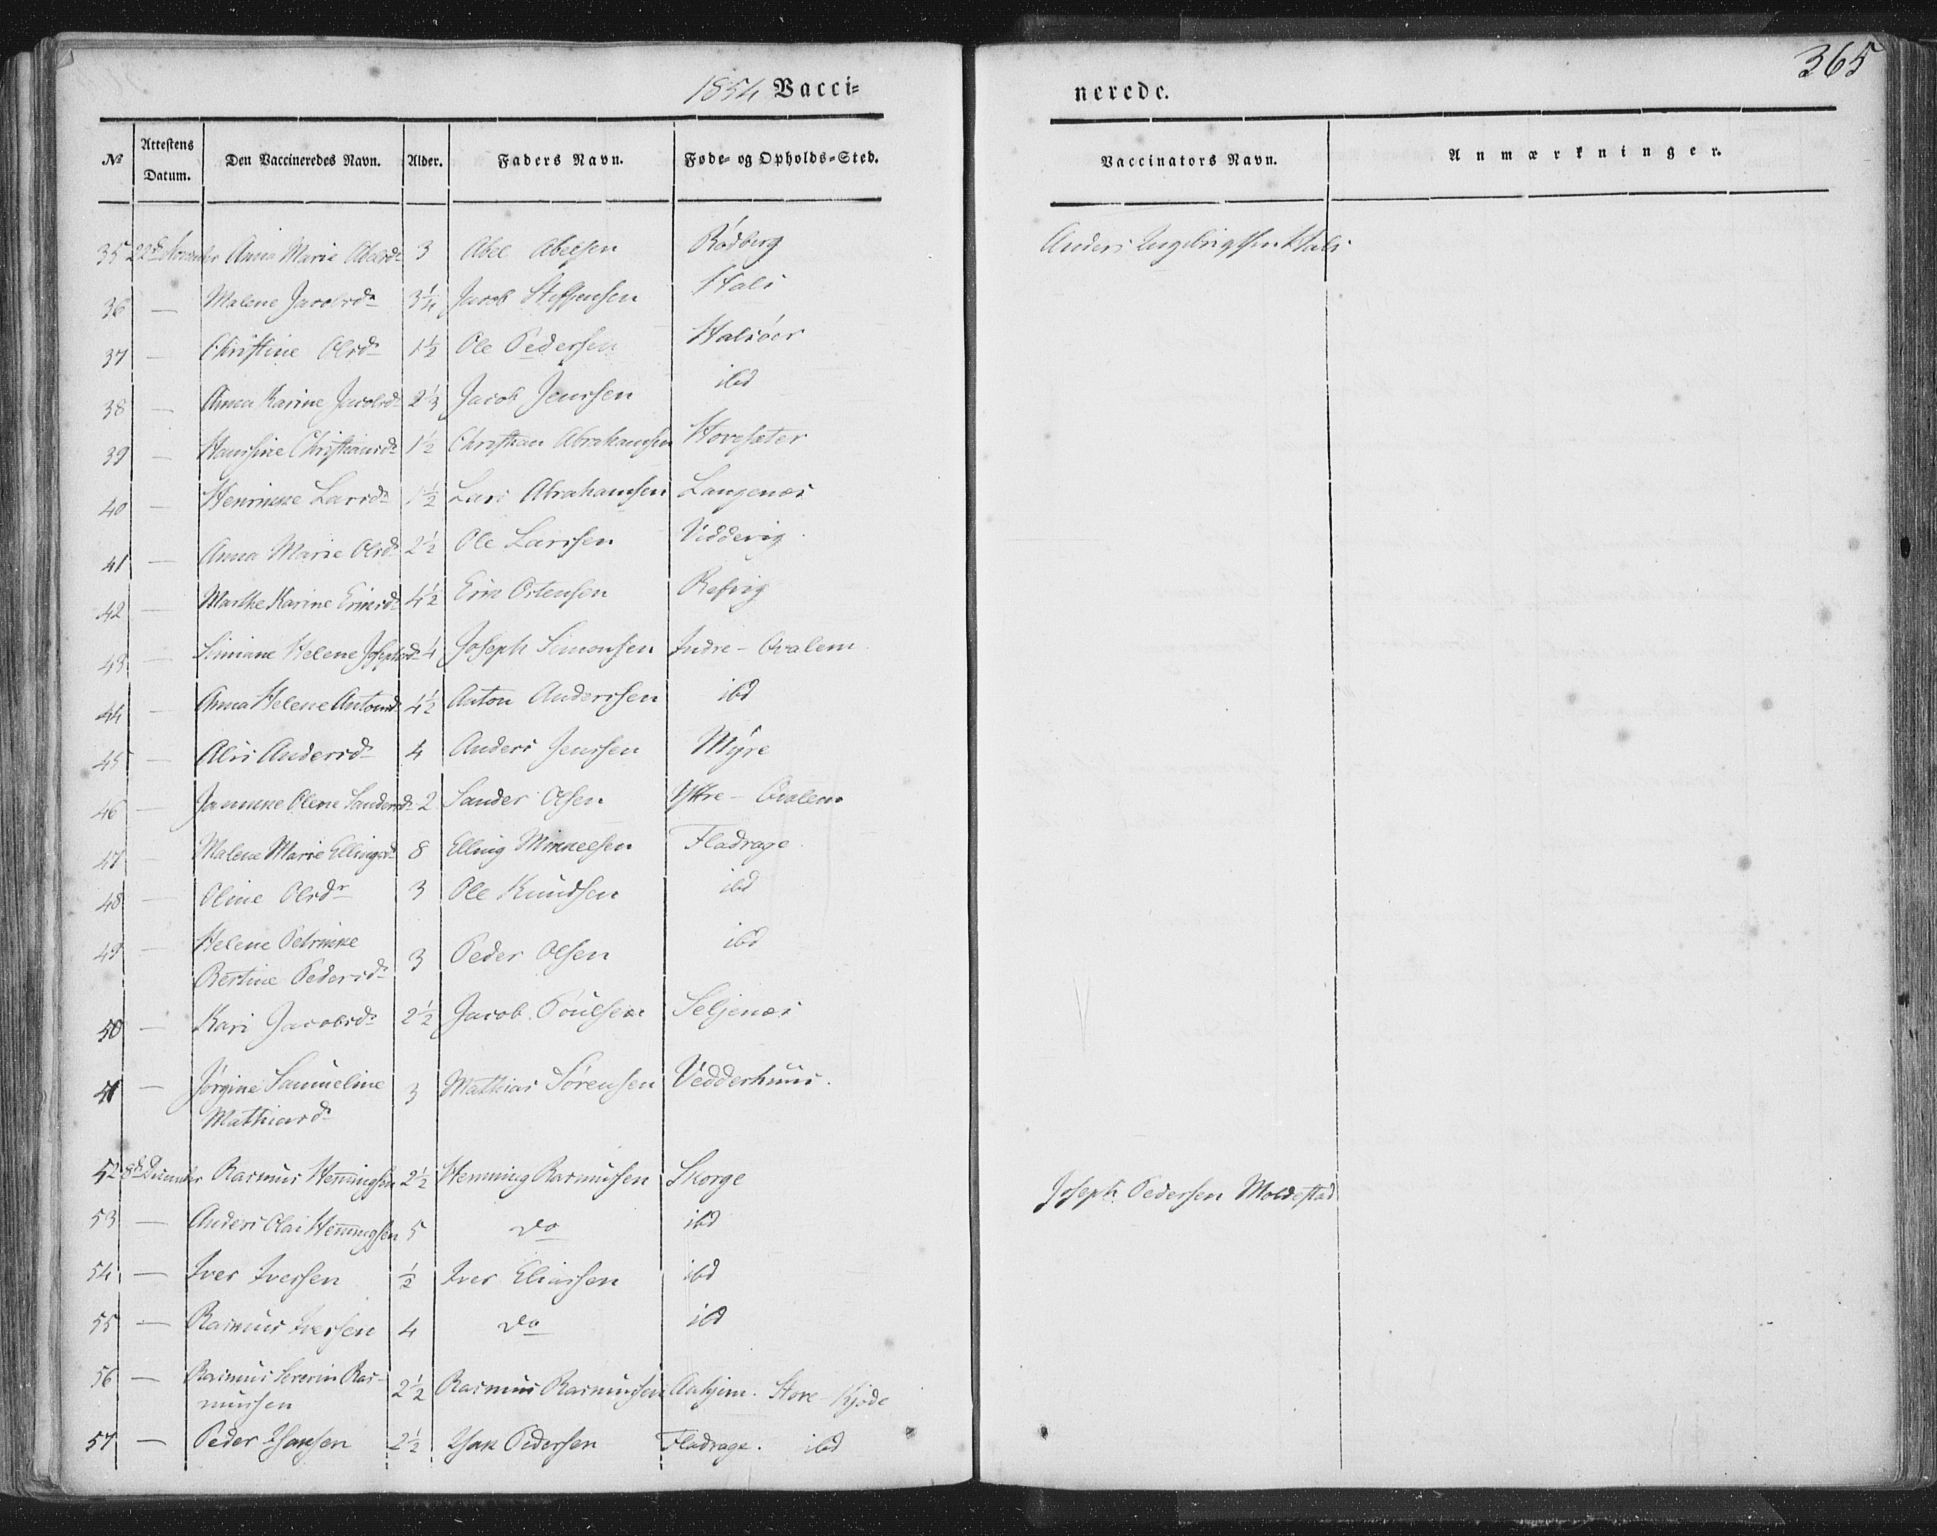 365
1854 Vacci=
nerede.
№ Attestens Datum. Den Vaccineredes Navn. Alder. Faders Navn. Føde- og Opholds-Sted. Vaccinators Navn. Anmærkninger.
35 22d November Anna Marie Abelsdr 3 Abel Abelsen Rødberg Anders Engebrigtsen Hals
36 — Malene Jacobsdr 3¼ Jacob Steffensen Hals
37 — Christine Olsdr 1½ Ole Pedersen Halsøer
38 — Anna Karine Jacobsdr 2⅓ Jacob Jenssen ibd
39 — Hansine Christiansdr 1½ Christian Abrahamsen Hovesæter
40 — Henrikke Larsdr 1½ Lars Abrahamsen Langenæs
41 — Anna Marie Olsdr 2½ Ole Larssen Viddevig
42 — Marthe Karine Eriksdr 4½ Erik Ostensen Refvig
43 — Simiane Helene Josephsdr 4 Joseph Simonsen Indre - Qvalem
44 — Anna Helene Antonsdr 4½ Anton Anderssen ibd
45 — Alis Andersdr 4 Anders Jenssen Myre
46 — Jannikke Olene Sandersdr 2 Sander Olsen Yttre - Qvalem
47 — Malene Marie Ellingsdr 8 Elling Mikkelsen Fladrage
48 — Oline Olsdr 3 Ole Knudsen ibd
49 — Helene Petrikke
Bertine Pedersdr 3 Peder Olsen ibd
50 — Kari Jacobsdr 2½ Jacob Poulsen Seljenæs
51 — Jørgine Samueline
Mathiasdr 3 Mathias Sørensen Vedderhuus.
52 8d December Rasmus Hem̅ingsen 2½ Hemming Rasmussen Skorge Joseph Pedersen Moldestad
53 — Anders Olai Hem̅ingsen 5 do ibd
54 — Iver Iversen ½ Iver Eliassen ibd
55 — Rasmus Iversen 4 do ibd
56 — Rasmus Severin Ras-
mussen 2½ Rasmus Rasmussen Aahjem. Store - Kjøde
57 — Peder Isaksen 2½ Isak Pedersen Fladrage. ibd